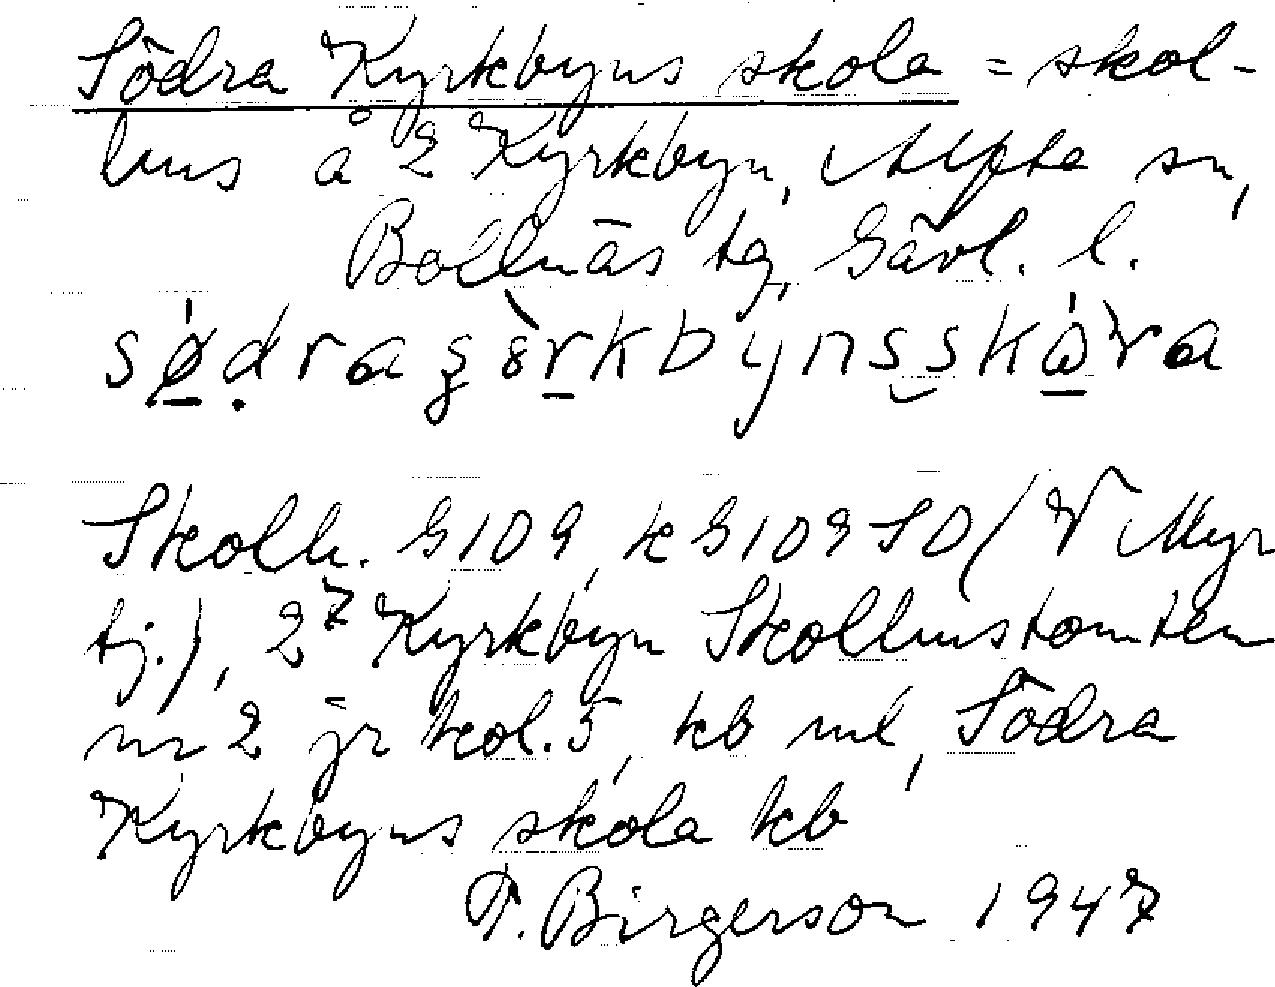 Södra Kyrkbyns skola = skol-
hus å 2 Kyrkbyn, Alfta sn,
Bollnäs tg, Gävl. l.
Skolh. G109, k G109 SO (V Myr
tj.), 2⁷ Kyrkbyn Skolhustomten
nr 2 jr kol. 5, kb ml, Södra
Kyrkbyns skola kb
F. Birgerson 1947